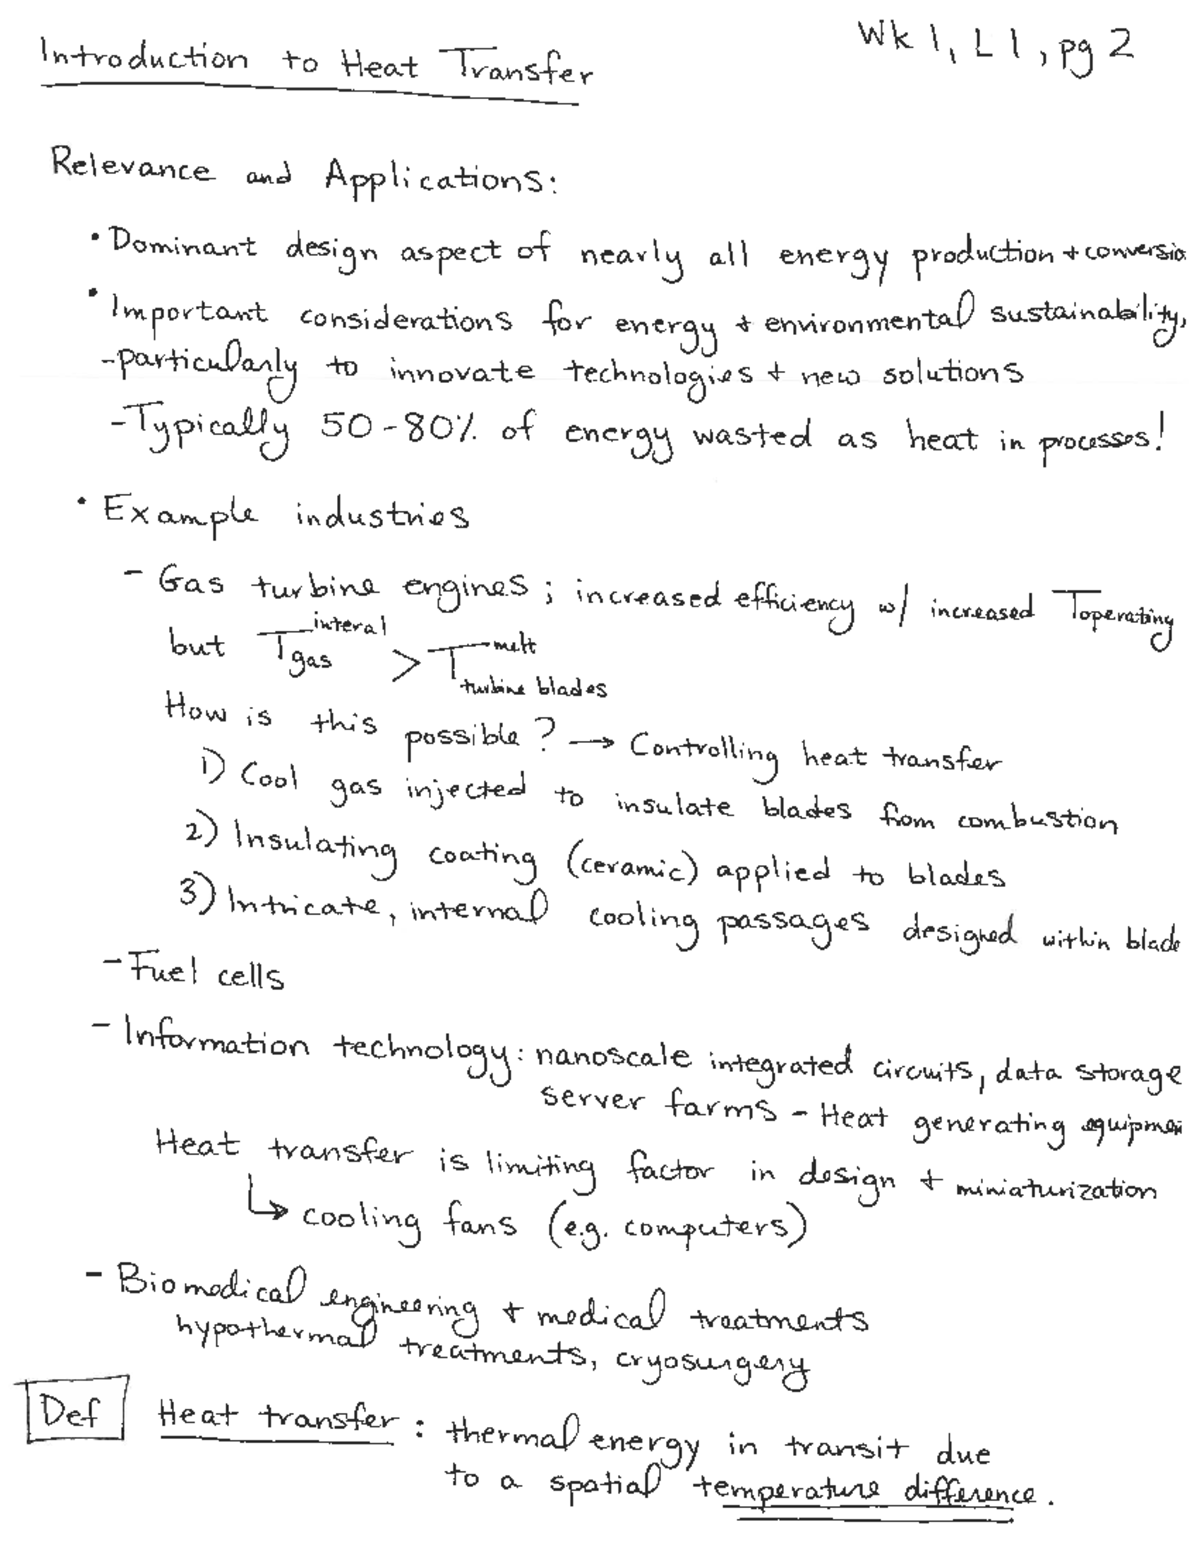 Wk 1, L1, pg 2
Introduction to Heat Transfer
Relevance and Applications:
• Dominant design aspect of nearly all energy production + conversio
• Important considerations for energy + environmental sustainability,
- particularly to innovate technologies + new solutions
- Typically 50-80% of energy wasted as heat in processes!
• Example industries
- Gas turbine engines; increased efficiency w/ increased Toperating
but T gas interal > T turbine blades melt
How is this possible? → Controlling heat transfer
1) Cool gas injected to insulate blades from combustion
2) Insulating coating (ceramic) applied to blades
3) Intricate, internal cooling passages designed within blade
- Fuel cells
- Information technology: nanoscale integrated circuits, data storage
server farms - Heat generating equipmen
Heat transfer is limiting factor in design + miniaturization
↳ cooling fans (e.g. computers)
- Biomedical engineering + medical treatments
hypothermal treatments, cryosurgery
Def Heat transfer: thermal energy in transit due
to a spatial temperature difference.